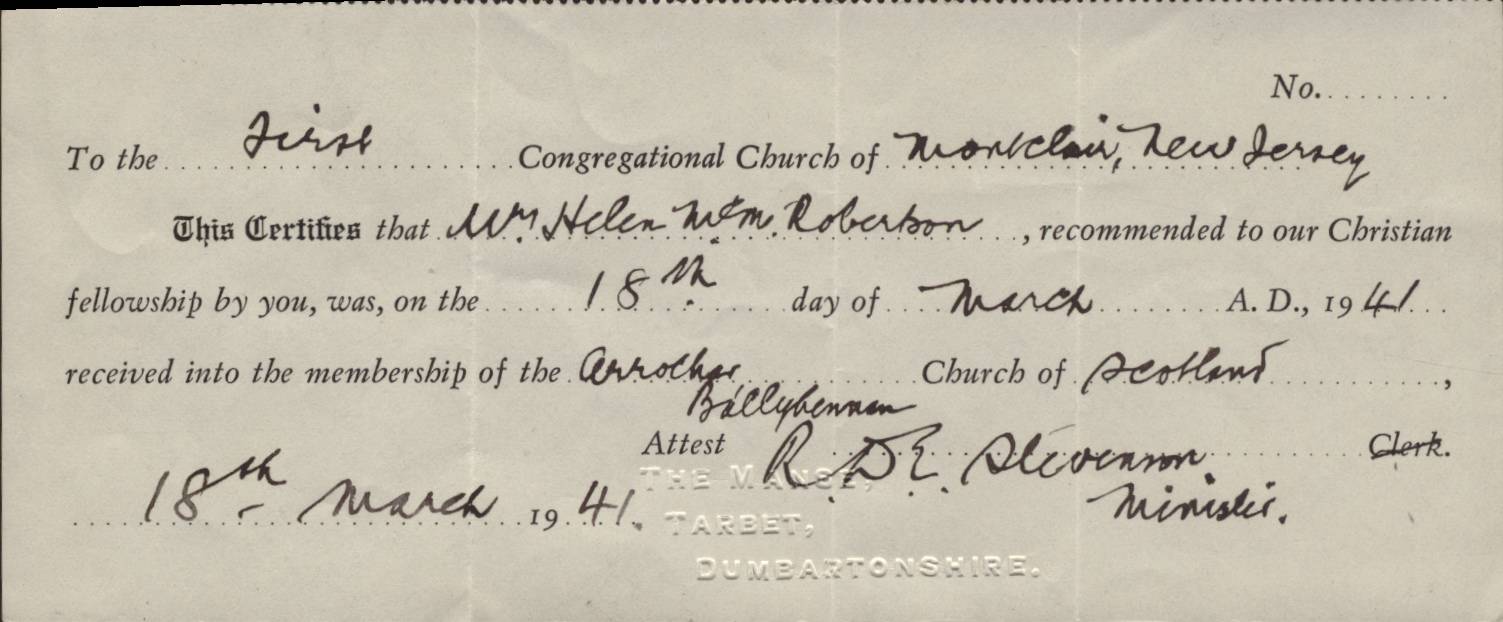 No.
To the First Congregational Church of Montclair, New Jersey
This Certifies that Mrs. Helen McM. Robertson, recommended to our Christian
fellowship by you, was, on the 18th day of March A. D., 1941
received into the membership of the Arrochar Church of Scotland,
Attest R. D. E. Stevenson. Clerk.
Minister.
18th March 1941.
THE MANSE,
TARBET,
DUMBARTONSHIRE.